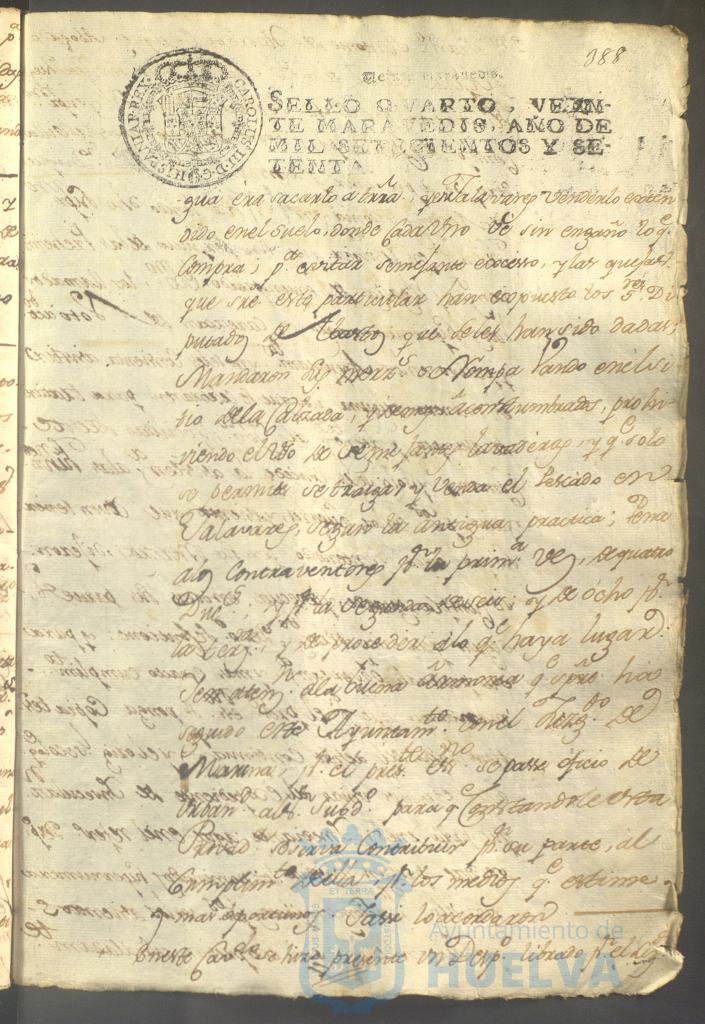 388
CAROLUS III D G HISPANIAR REX
Veinte maravedis.
SELLO QVARTO, VEIN-
TE MARAVEDIS, AÑO DE
MIL SETECIENTOS Y SE-
TENTA
gua era sacarlo a trra, y en Talavares venderlo
dido en el suelo, donde Cada Vno ve sin engaño lo q.e
Compra; p.a evitar semejante excesso, y las quejas
que sre este particular han expuesto los S.res Di
putados de Abastos, que se les han sido dadas;
Mandaron sus merz.s en el si
tio de la Calzada, y acostumbrados, prohi
viendo el Vso de y q.e solo
se permita se traiga y venda el Pescado en
Talavares, segun la antigua practica; Pena
a los Contraventores p.r la prim.a vez, de quatro
Duc.s; y p.r la segunda de seis; y de ocho p.r
la terz.a; y de proceder a lo q.e haya lugar.
aten.n a la buena Armonia q.e spre ha
seguido este Ayuntam.to con el de
Marina, p.r el pres.te ess.no se passe oficio de
Vrban.d a su Jusgd.o para q.e Constandole esta
se sirva Contribuir p.r su parte, al
Cumplim.to de ella p.r los medios q.e estime
mas oportunos. Y assi lo acordaron
En este Cav.do se hizo presente un Desp.o librado p.r el
ET TERRAE
Ayuntamiento de
HUELVA